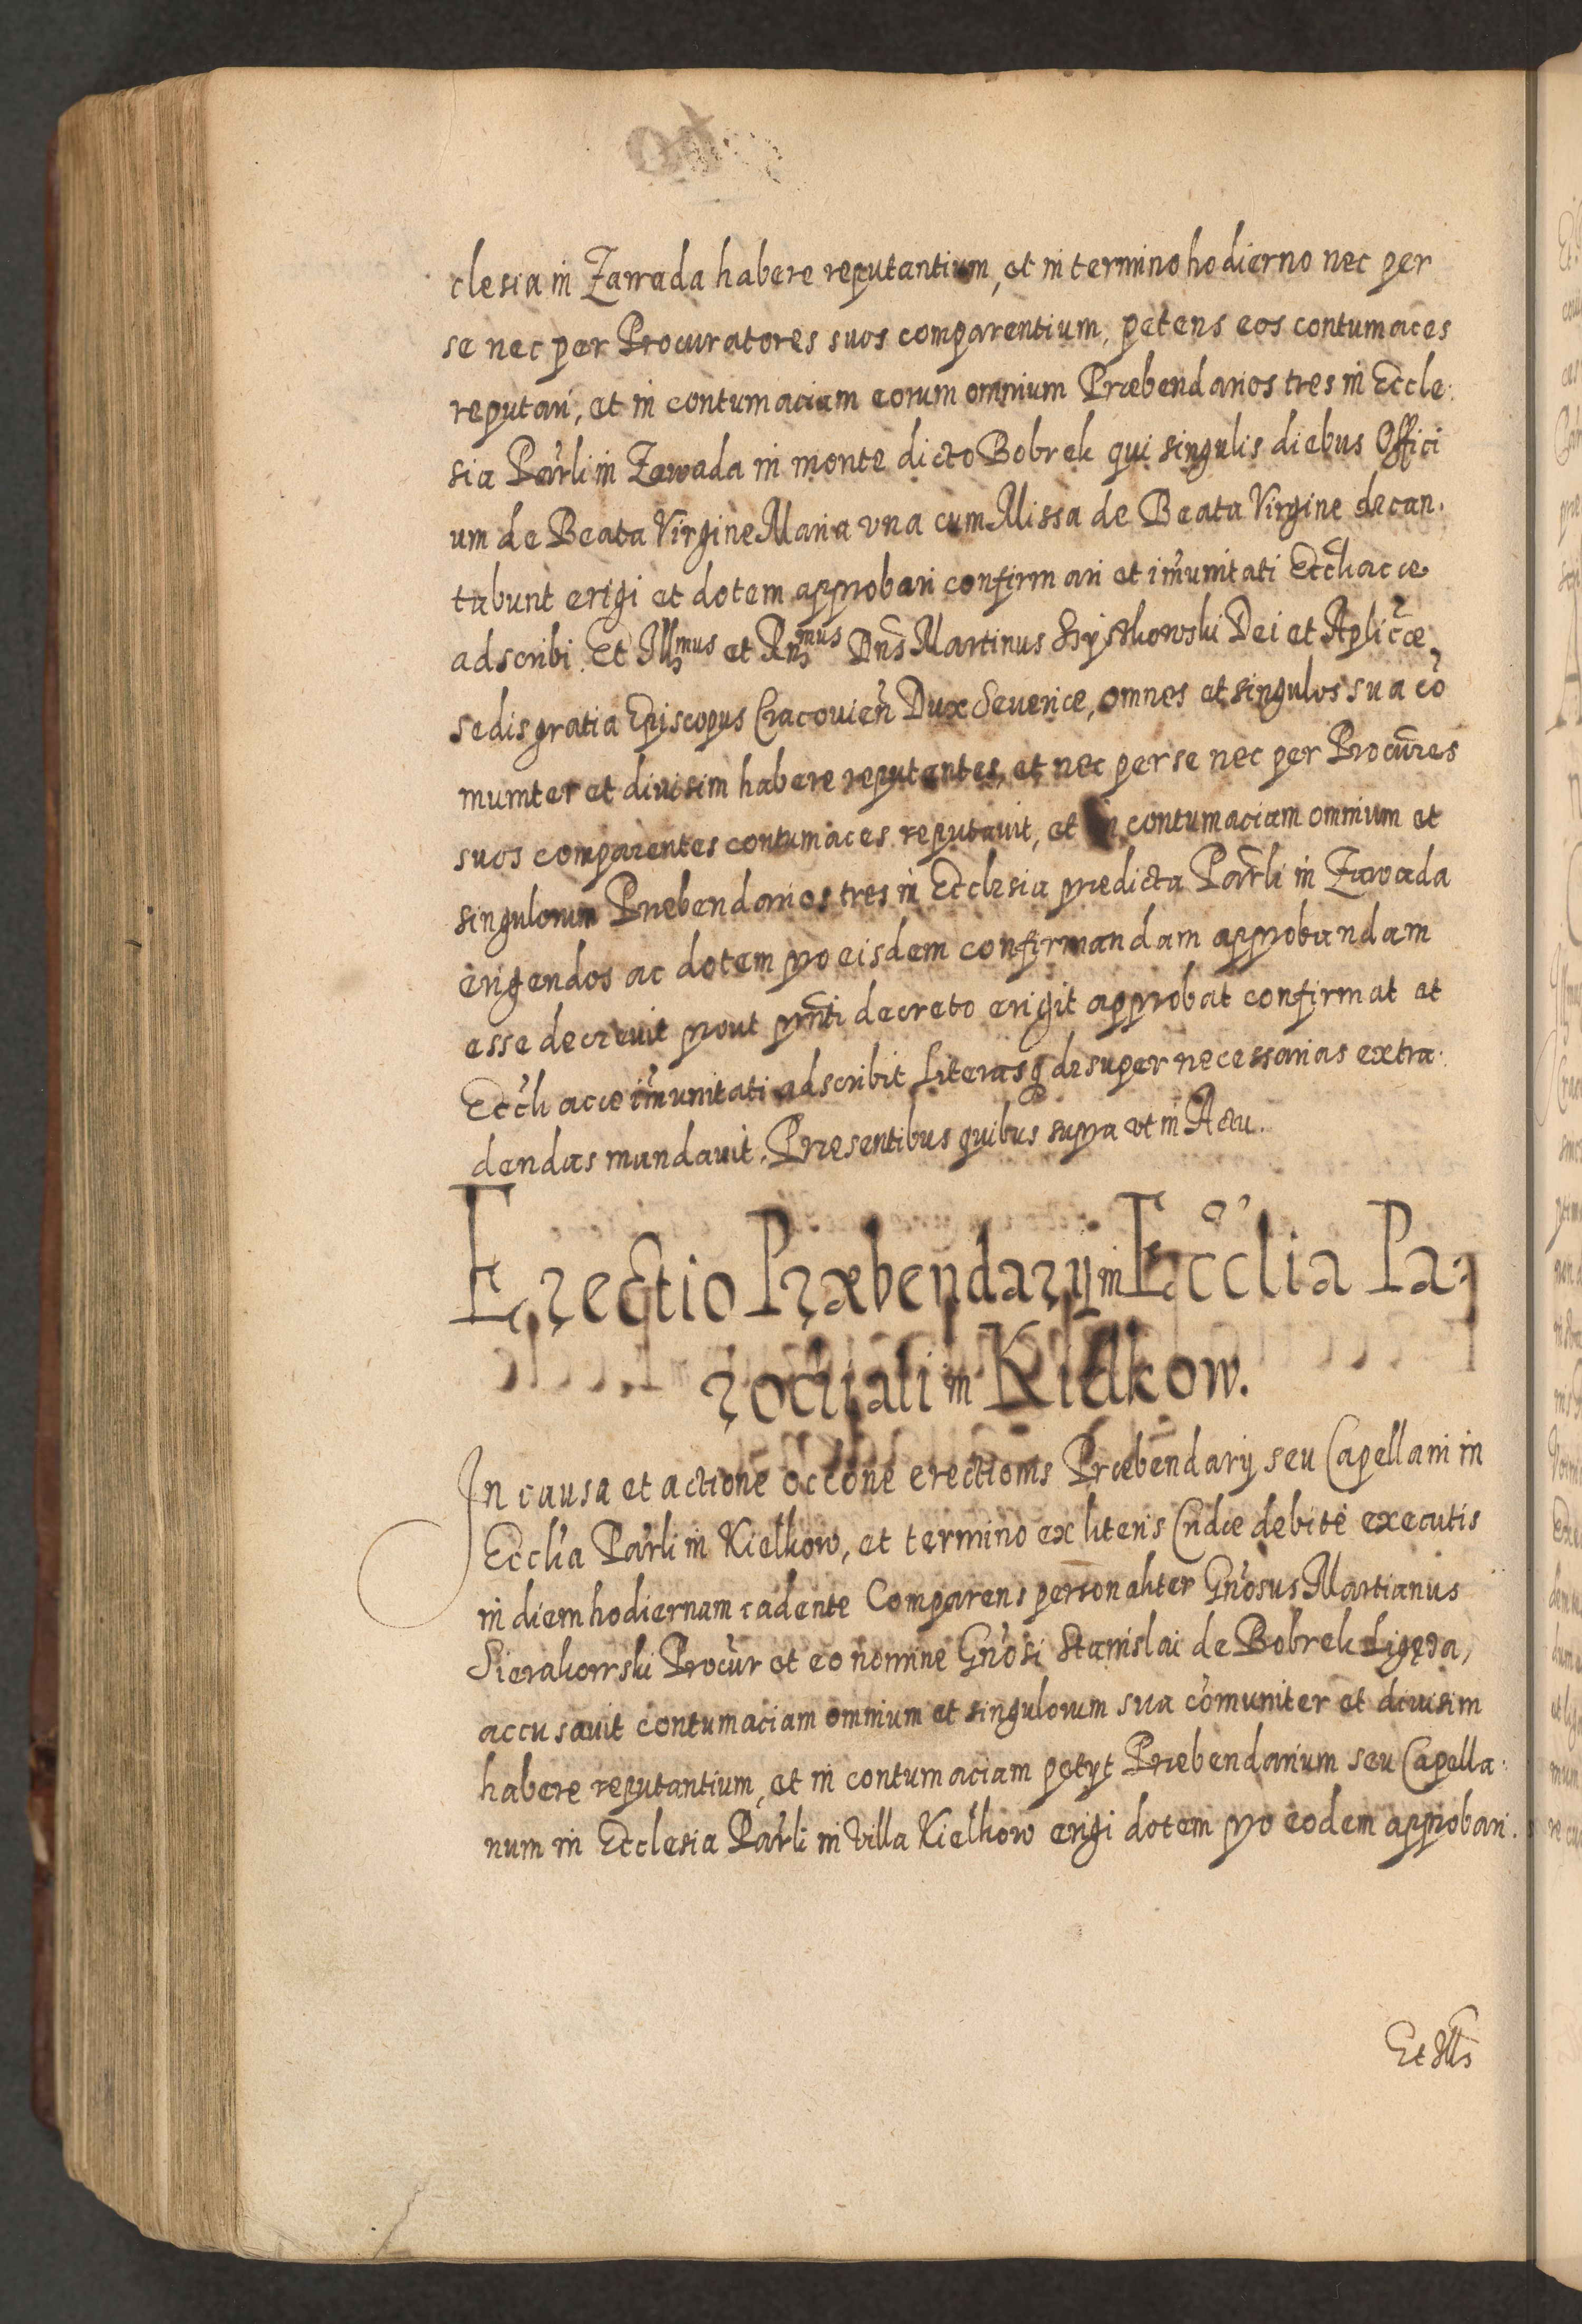 clesia in Zawada habere reputantium, et in termino hodierno nec per
se nec per Procuratores suos comparentium, petens eos contumaces
reputari, et in contumaciam eorum omnium Præbendarios tres in Eccle:
sia Parli in Zawada in monte dicto Bobrek qui singulis diebus Offici
um de Beata Virgine Maria vna cum Missa de Beata Virgine decan:
tabunt erigi et dotem approbari confirmari et im̃unitati Ecclĩacæ
adscribi. Et Illmus et Rnmus Dns Martinus Szyszkowski Dei et Aplicæ
sedis gratia Episcopus Cracouien̄ Dux Seueriæ, omnes et singulos sua cō
muniter et diuisim habere reputantes, et nec per se nec per Procures
suos comparentes contumaces reputauit, et in contumaciam omnium et
singulorum Præbendarios tres in Ecclesia prædicta Parli in Zawada
erigendos ac dotem pro eisdem confirmandam approbandam
esse decreuit prout pn̄ti decreto erigit approbat confirmat et
Ecclĩacæ im̃unitati adscribit Literasq desuper necessarias extra:
dendas mandauit. Præsentibus quibus supra vt in Actu.
Erectio Præbendarÿ in Ecc̃lia Pa:
rochiali in Kielkow.
In causa et actione occ̄one erectionis Præbendarÿ seu Capellani in
Ecclĩa Parli in Kielkow, et termino ex literis Cridæ debite executis
in diem hodiernam cadente Comparens personaliter Gn̄osus Martianus
Sierakowski Procur et eo nomine Gn̄osi Stanislai de Bobrek Ligęza,
accusauit contumaciam omnium et singulorum sua com̄uniter et diuisim
habere reputantium, et in contumaciam petÿt Præbendarium seu Capella:
num in Ecclesia Parli in Villa Kielkow erigi dotem pro eodem approbari.
Et Ills